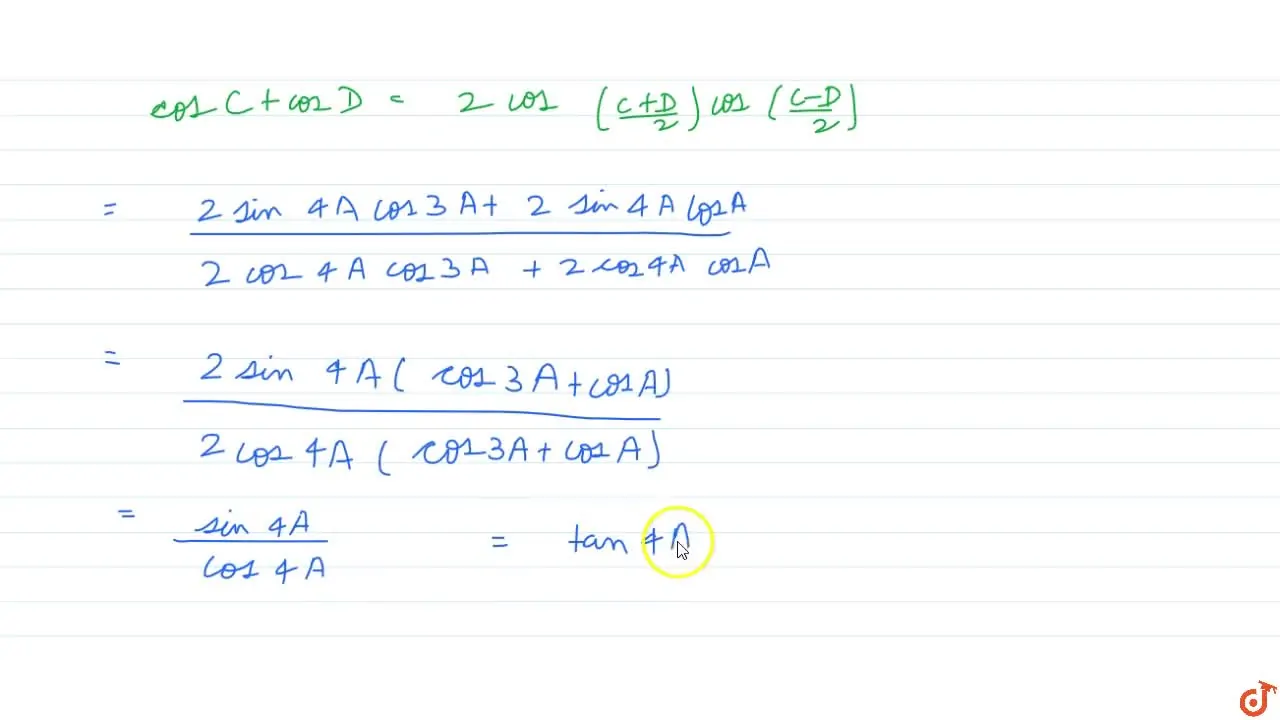 cos C + cos D = 2 cos (C+D/2) cos (C-D/2)
= 2 sin 4A cos 3A + 2 sin 4A cos A
2 cos 4A cos 3A + 2 cos 4A cos A
= 2 sin 4A ( cos 3A + cos A)
2 cos 4A ( cos 3A + cos A)
= sin 4A = tan 4A
cos 4A